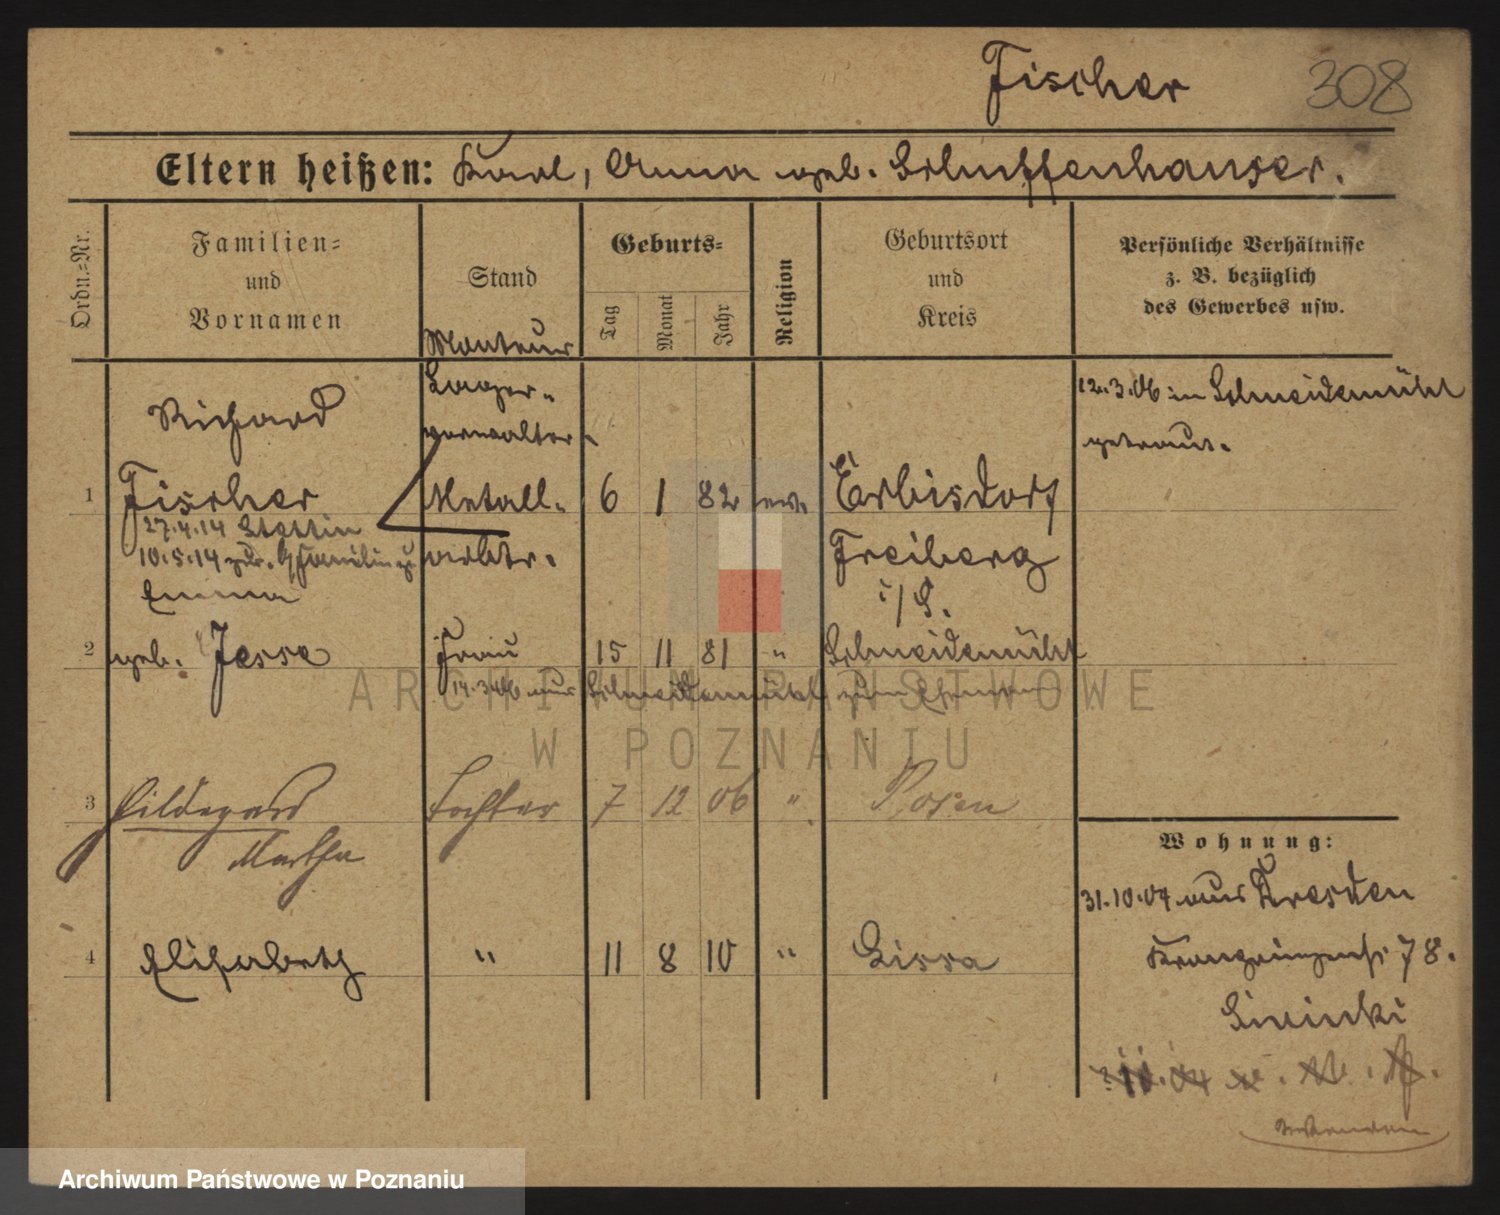 Fischer 308
Eltern heißen: Karl, Anna geb. Schuffenhauser.
Ordn.-Nr.
Familien-
und
Vornamen
Stand
Geburts-
Tag
Monat
Jahr
Religion
Geburtsort
und
Kreis
Persönliche Verhältnisse
z. B. bezüglich
des Gewerbes usw.
Monteur
Lager-
verwalter
Richard
12.3.06 in Schneidemühl
getraut.
1 Fischer Metall- 6 1 82 ev. Erbisdorf
27.4.14 Stettin
10.5.14 Familie
arbtr. Freiberg
i/S.
Emma
2 geb. Jesse Frau 15 11 81 " Schneidemühl
14.3.06 aus Schneidemühl zum Ehemann
3 Hildegard Tochter 7 12 06 " Posen
Martha
4 Elisabeth " 11 8 10 " Lissa
Wohnung:
31.10.04 aus Dresden
Kronprinzenstr 78.
ARCHIWUM PAŃSTWOWE
W POZNANIU
Archiwum Państwowe w Poznaniu